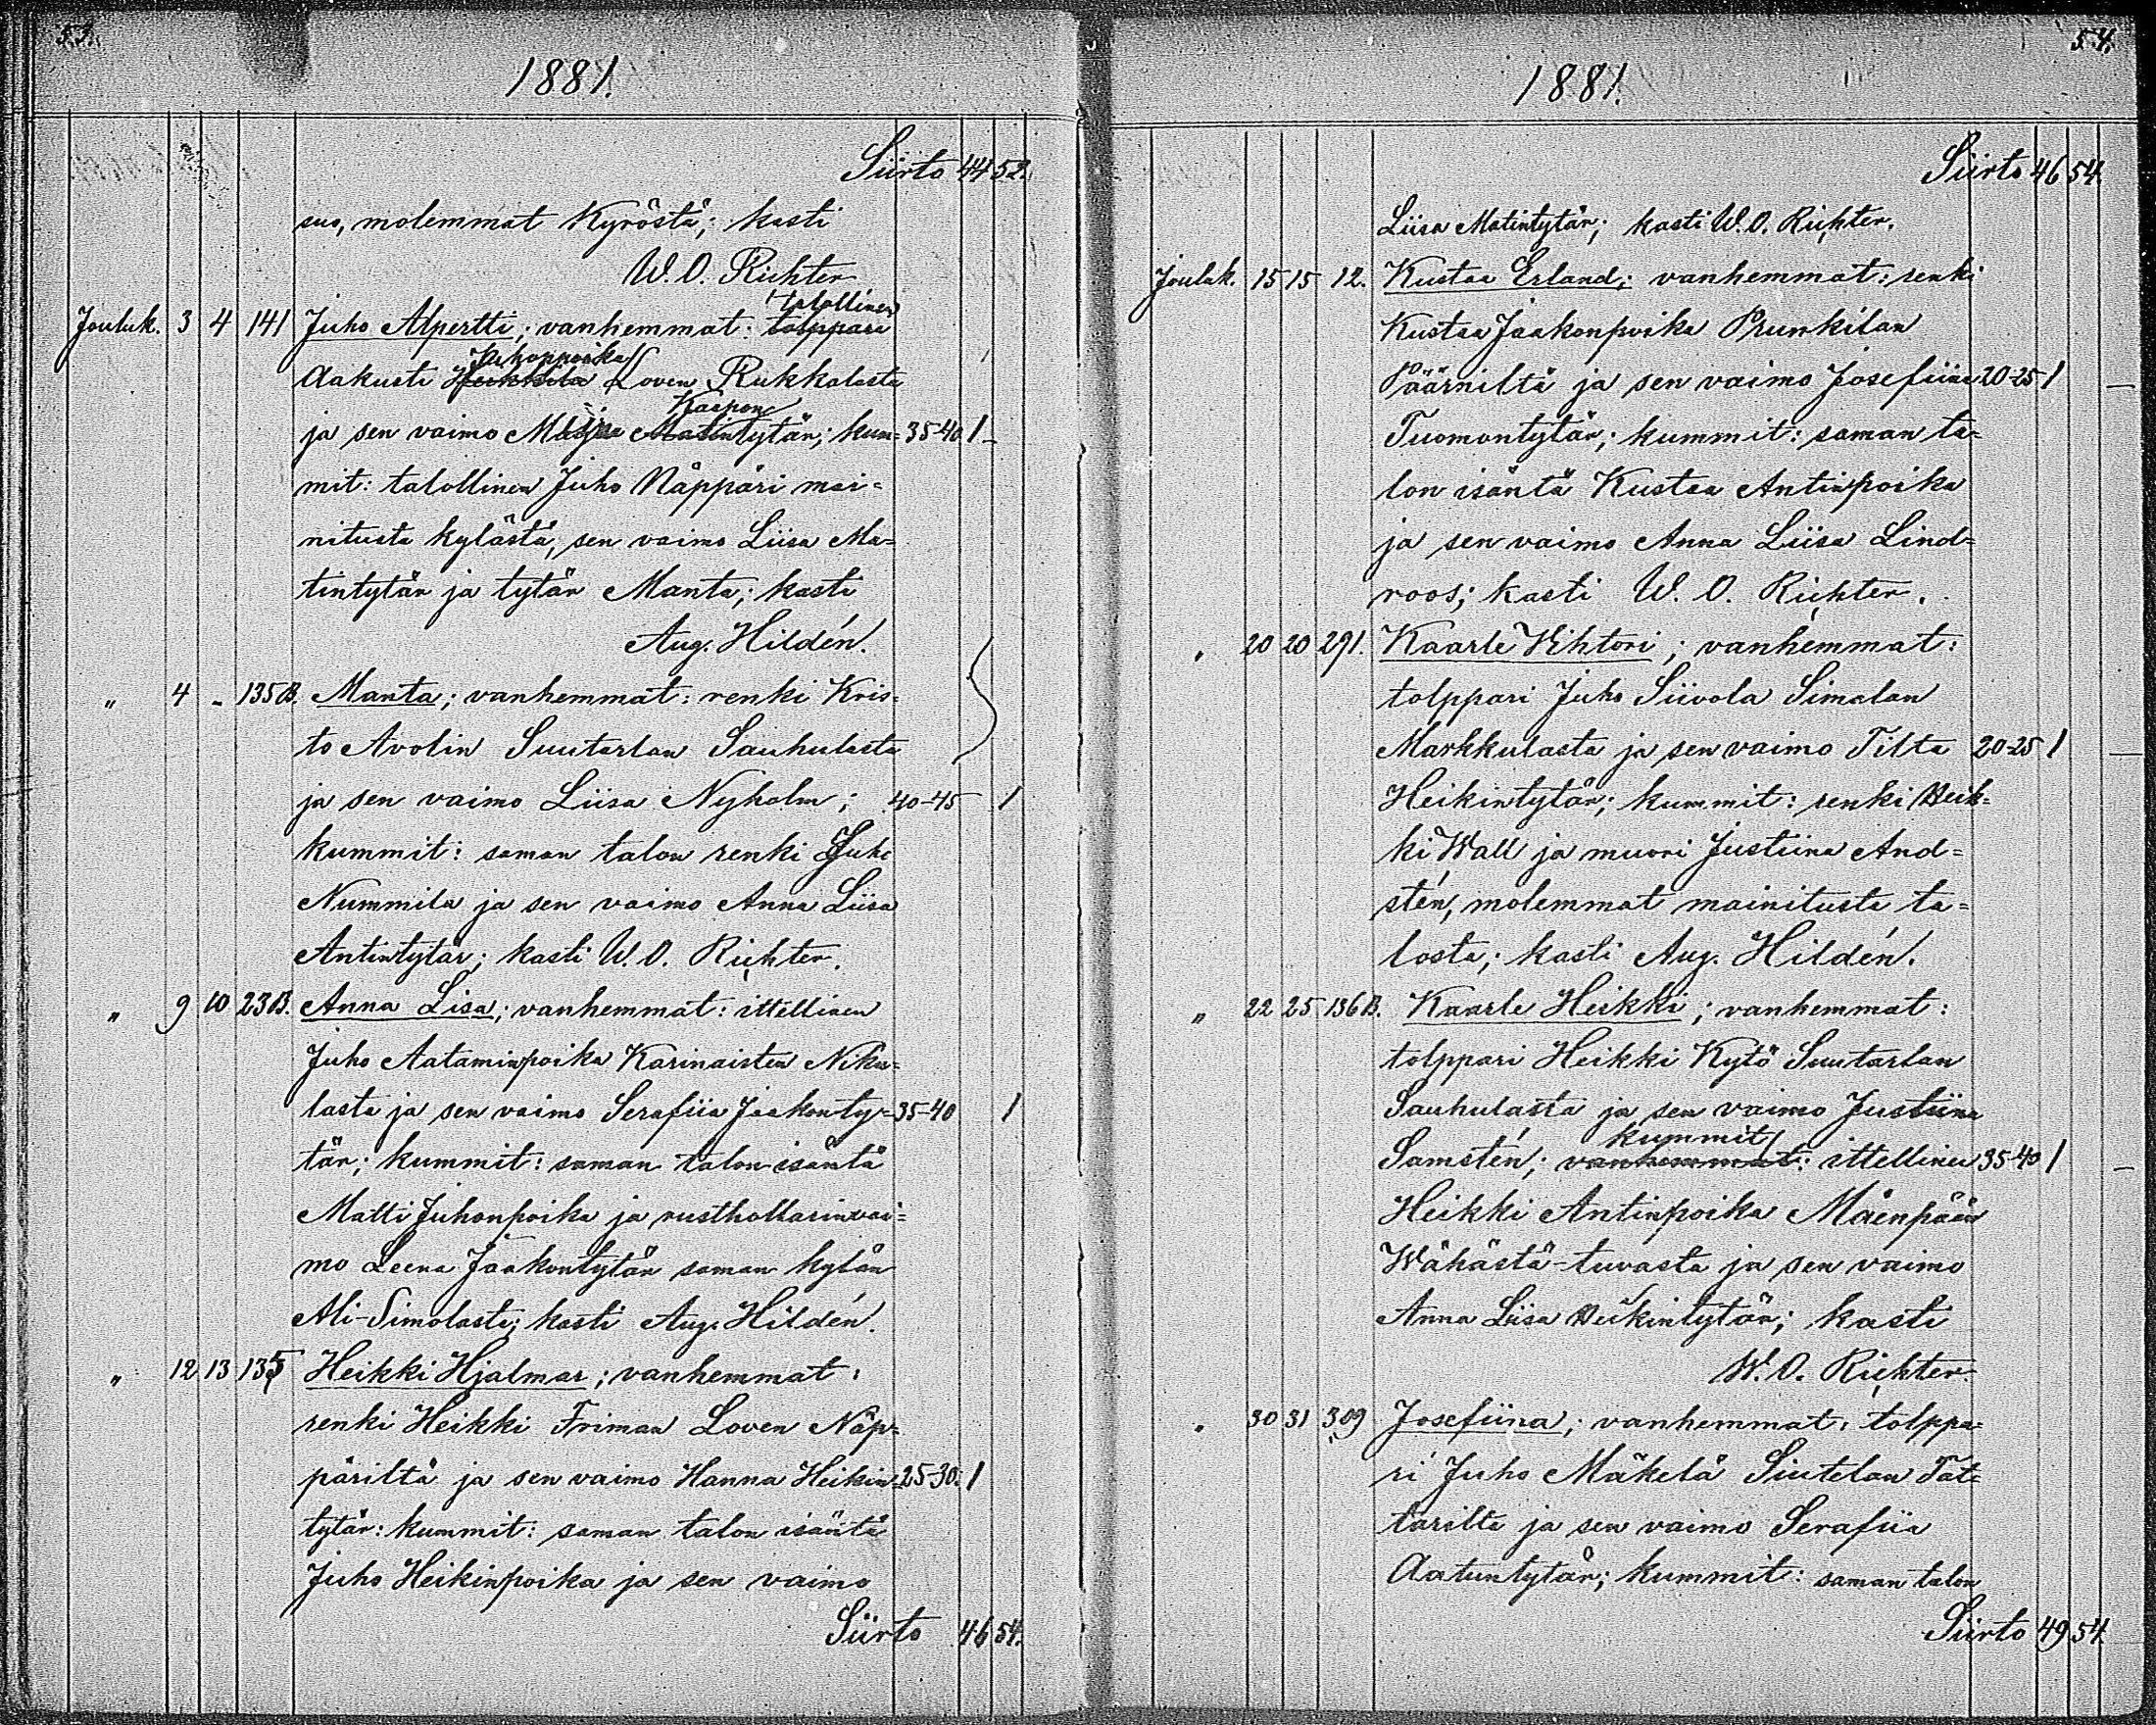 53.
1881.
Siirto 44 52.
suo, molemmat Kyröstä; kasti
W. O. Richter
talollinen
Jouluk. 3 4 141 Juho Alpertti; vanhemmat: tolppari
Juhonpoika
Aakusti Heikkilä Loven Rukkalasta
Kaapon
ja sen vaimo Maija Matintytär; kum= 35-40 1
mit: talollinen Juho Näppäri mai=
nitusta kylästä, sen vaimo Liisa Ma=
tintytär ja tytär Manta; kasti
Aug. Hildén.
" 4 - 135B. Manta; vanhemmat: renki Kris=
to Avolin Suutarlan Sauhulasta
ja sen vaimo Liisa Nyholm; 40-45 1
kummit: saman talon renki Juho
Nummila ja sen vaimo Anna Liisa
Antintytär; kasti W. O. Richter.
" 9 10 23B. Anna Lisa; vanhemmat: ittellinen
Juho Aataminpoika Karinaisten Niku=
lasta ja sen vaimo Serafiia Jaakonty= 35-40 1
tär; kummit: saman talon isäntä
Matti Juhonpoika ja rusthollarinvai=
mo Leena Jaakontytär saman kylän
Ali-Simolasta; kasti Aug. Hildén.
" 12 13 135 Heikki Hjalmar; vanhemmat:
renki Heikki Friman Loven Näp=
päriltä ja sen vaimo Hanna Heikin= 25-30. 1
tytär: kummit: saman talon isäntä
Juho Heikinpoika ja sen vaimo
Siirto 46 54.
54.
1881.
Siirto 46 54.
Liisa Matintytär; kasti W. O. Richter.
Jouluk. 15 15 12. Kustaa Erland; vanhemmat: renki
Kustaa Jaakonpoika Prunkilan
Päärniltä ja sen vaimo Josefiina 20-25 1
Tuomontytär; kummit: saman ta=
lon isäntä Kustaa Antinpoika
ja sen vaimo Anna Liisa Lind=
roos; kasti W. O. Richter.
" 20 20 291. Kaarle Vihtori; vanhemmat:
tolppari Juho Siivola Simalan
Markkulasta ja sen vaimo Tilta 20-25 1
Heikintytär; kummit: renki Heik=
ki Wall ja muori Justiina And=
stén, molemmat mainitusta ta=
losta; kasti Aug. Hildén.
" 22 25 136B. Kaarle Heikki; vanhemmat:
tolppari Heikki Kytö Suutarlan
Sauhulasta ja sen vaimo Justiina
kummit
Samstén; vanhemmat: ittellinen 35-40 1
Heikki Antinpoika Mäenpään
Wähästä-tuvasta ja sen vaimo
Anna Liisa Heikintytär; kasti
W. O. Richter
" 30 31 309 Josefiina; vanhemmat: tolppa=
ri Juho Mäkelä Siutelan Tat=
tarilta ja sen vaimo Serafiia
Aatuntytär; kummit: saman talon
Siirto 49 54.